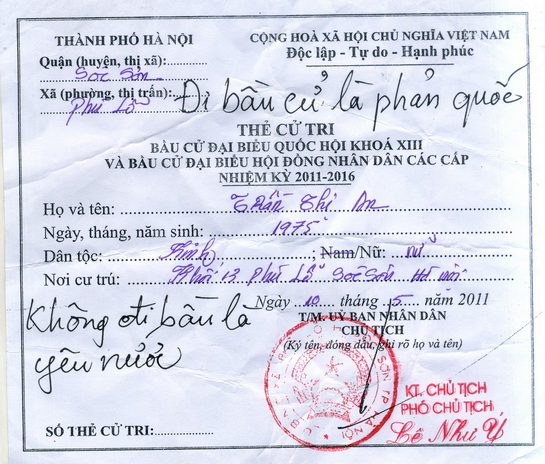 THÀNH PHỐ HÀ NỘI
CỘNG HOÀ XÃ HỘI CHỦ NGHĨA VIỆT NAM
Độc lập - Tự do - Hạnh phúc
Quận (huyện, thị xã):
Sóc Sơn
Xã (phường, thị trấn):
Phú Lỗ
Đi bầu cử là phản quốc
THẺ CỬ TRI
BẦU CỬ ĐẠI BIỂU QUỐC HỘI KHOÁ XIII
VÀ BẦU CỬ ĐẠI BIỂU HỘI ĐỒNG NHÂN DÂN CÁC CẤP
NHIỆM KỲ 2011-2016
Họ và tên: Trần Thị An
Ngày, tháng, năm sinh: 1975
Dân tộc: Kinh; Nam/Nữ: nữ
Nơi cư trú: Khối 13 Phú Lỗ Sóc Sơn Hà Nội
Ngày 10 tháng 5 năm 2011
T/M. UỶ BAN NHÂN DÂN
CHỦ TỊCH
(Ký tên, đóng dấu, ghi rõ họ và tên)
Không đi bầu là
yêu nước
KT. CHỦ TỊCH
PHÓ CHỦ TỊCH
Lê Như Ý
SỐ THẺ CỬ TRI: